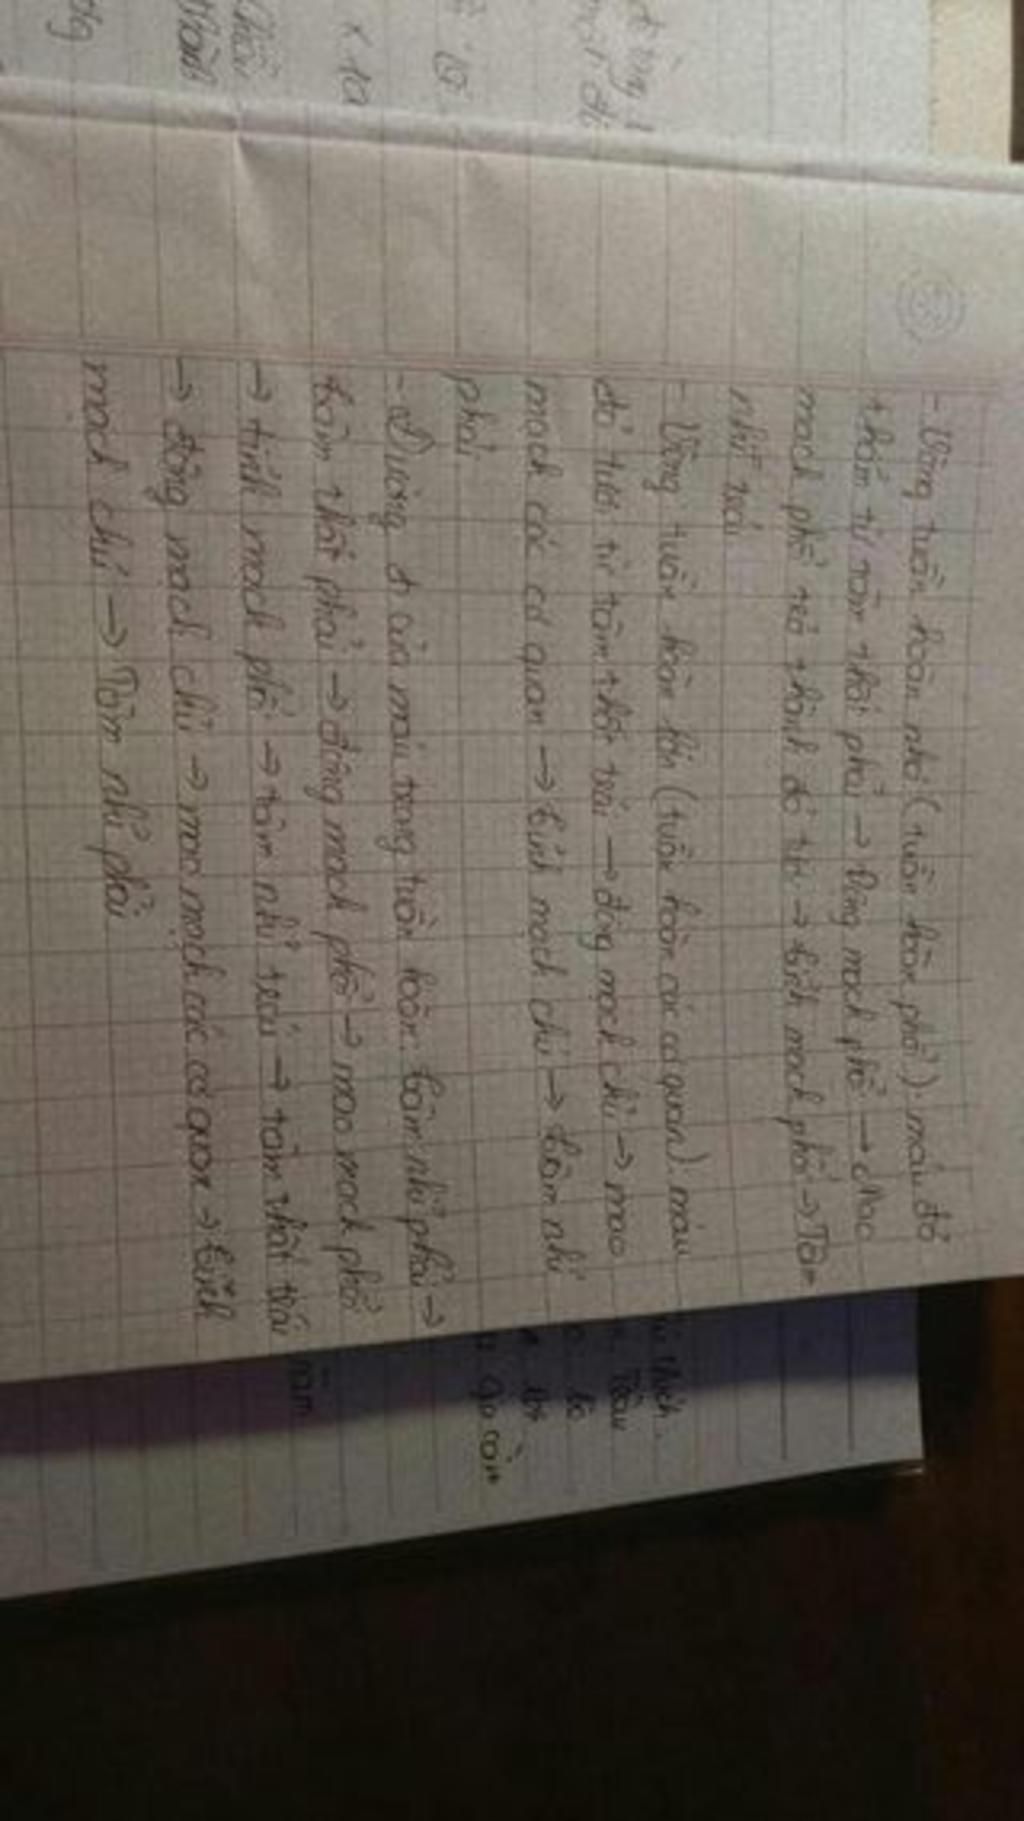 - Vòng tuần hoàn nhỏ (tuần hoàn phổi): máu đỏ
thẫm từ tâm thất phải → Động mạch phổi → Mao
mạch phổi trở thành đỏ tươi → tĩnh mạch phổi → Tâm
nhĩ trái
- Vòng tuần hoàn lớn (tuần hoàn các cơ quan): máu
đỏ tươi từ tâm thất trái → động mạch chủ → mao
mạch các cơ quan → tĩnh mạch chủ → tâm nhĩ
phải.
- Đường đi của máu trong tuần hoàn: tâm nhĩ phải →
tâm thất phải → động mạch phổi → mao mạch phổi
→ tĩnh mạch phổi → tâm nhĩ trái → tâm thất trái
→ động mạch chủ → mao mạch các cơ quan → tĩnh
mạch chủ → Tâm nhĩ phải